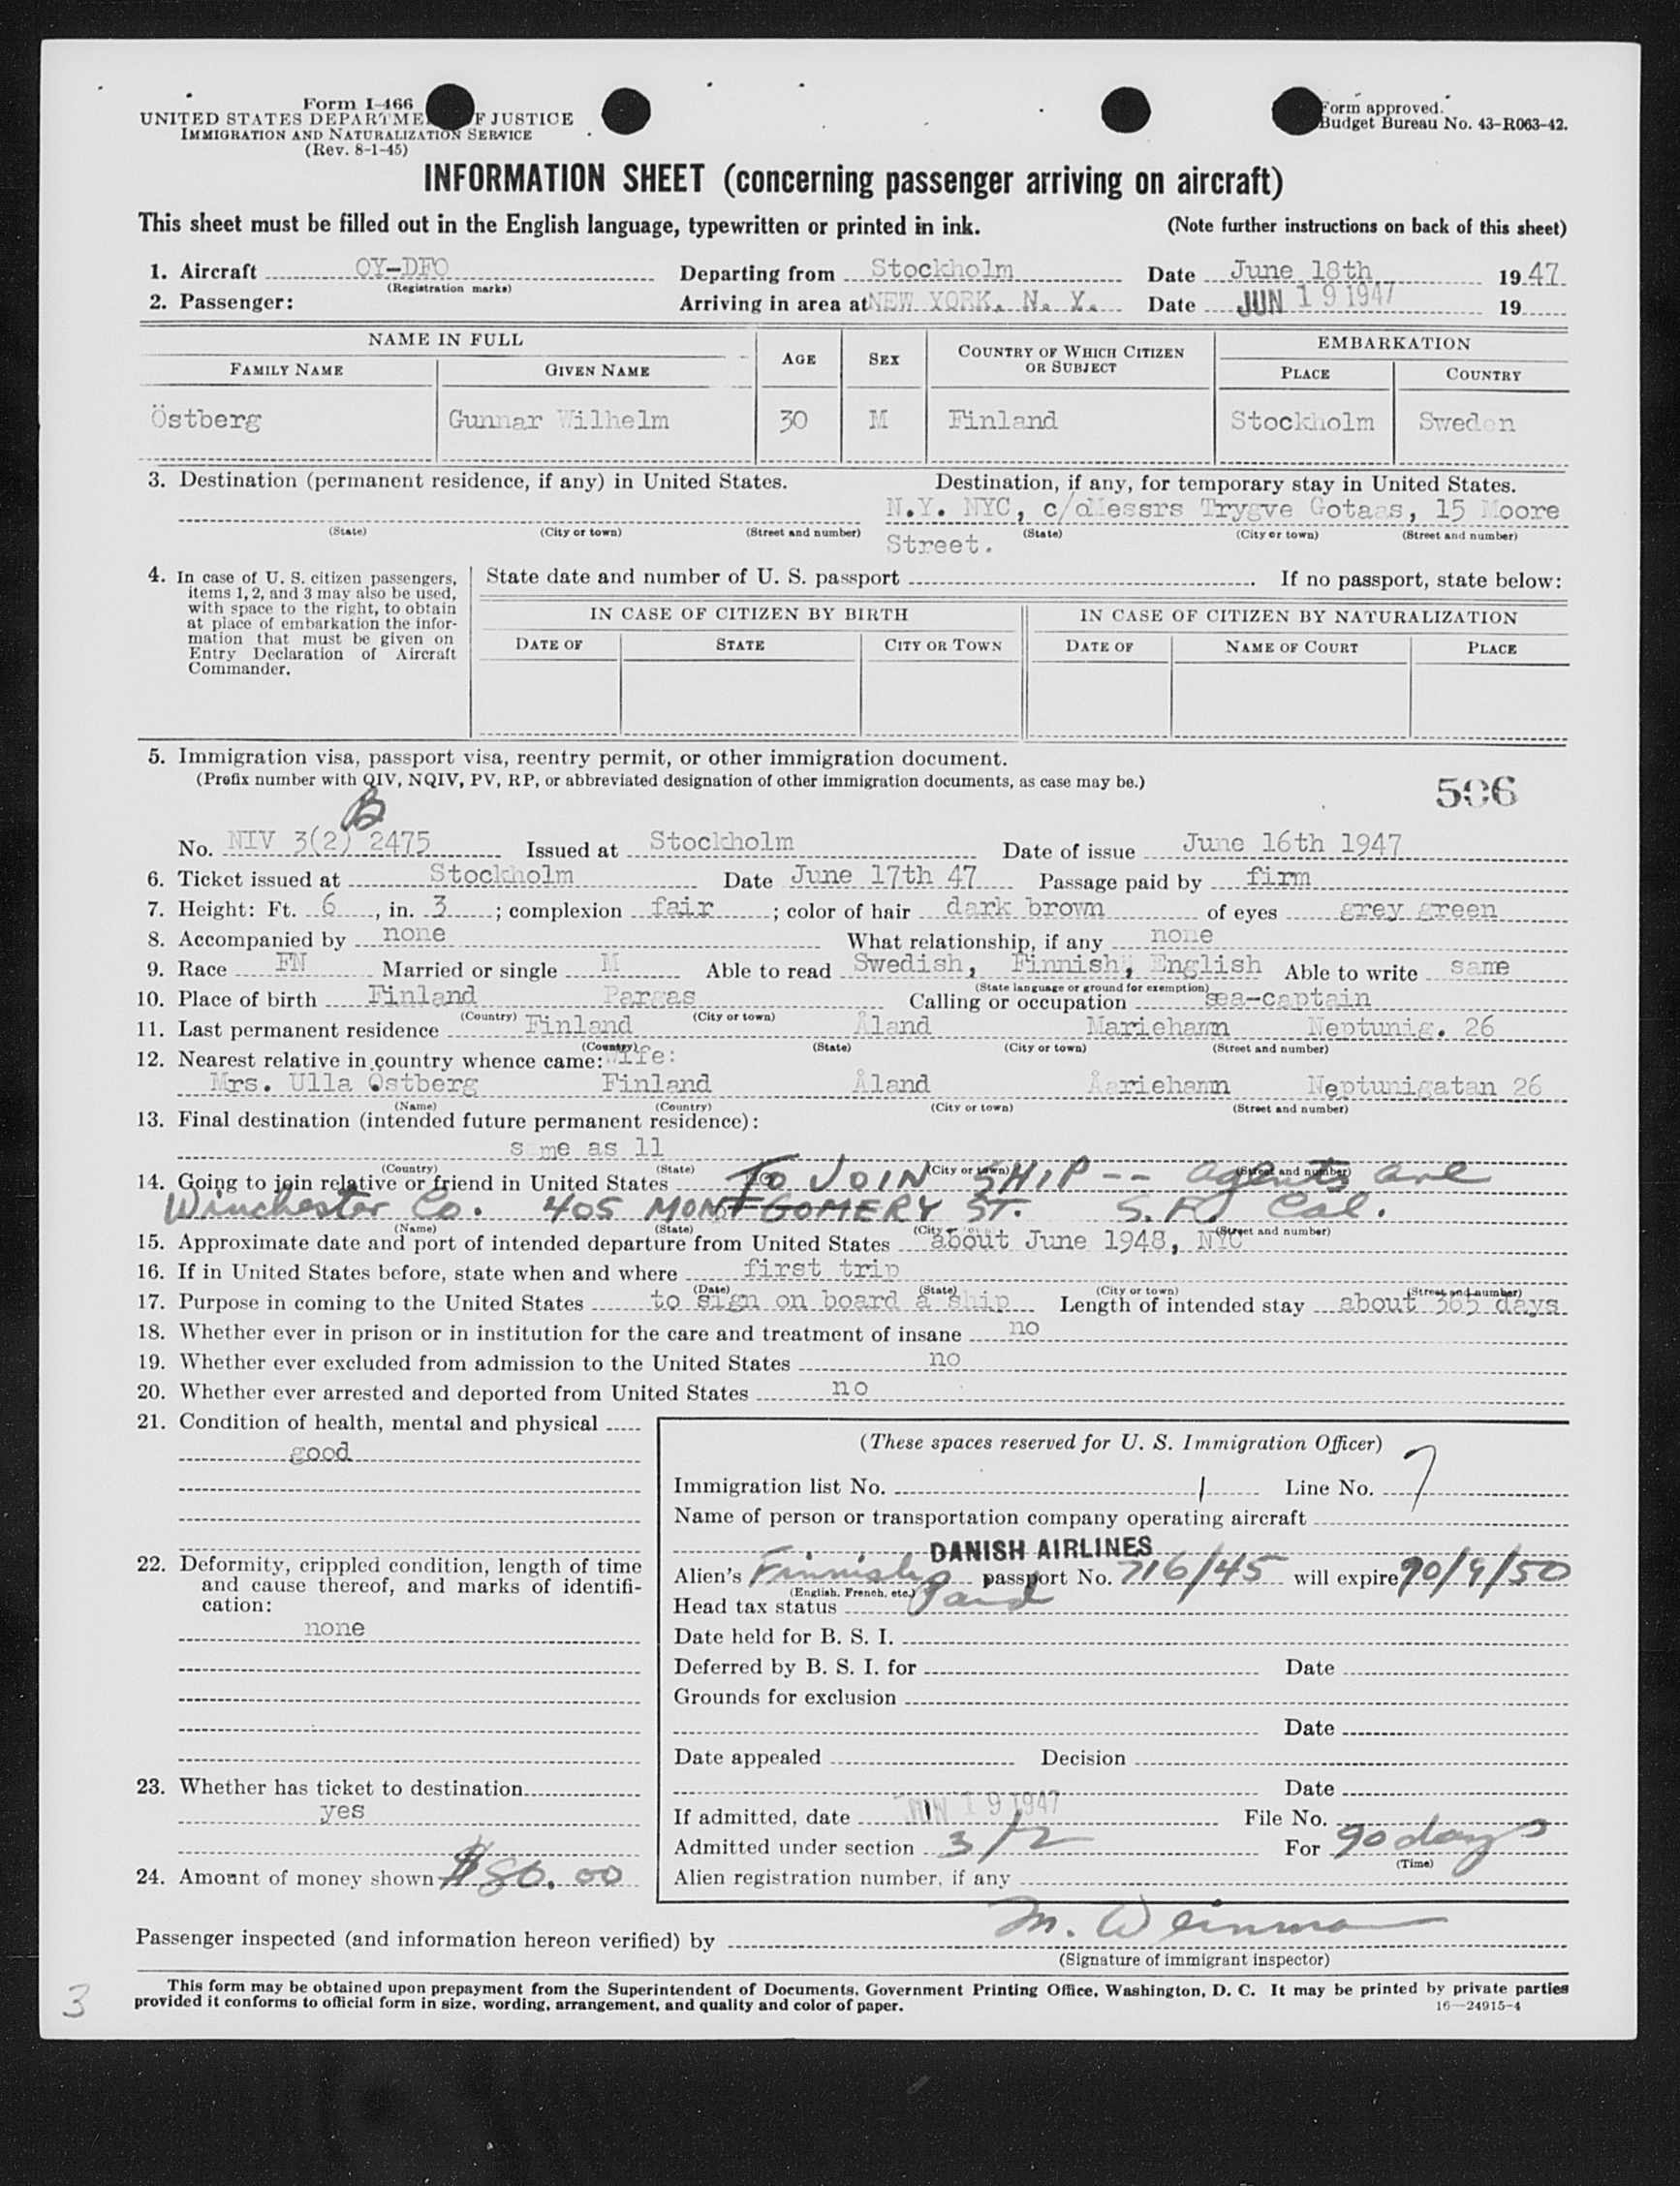 Form I-466
UNITED STATES DEPARTME F JUSTICE
IMMIGRATION AND NATURALIZATION SERVICE
(Rev. 8-1-45)
Form approved.
Budget Bureau No. 43-R063-42.
INFORMATION SHEET (concerning passenger arriving on aircraft)
This sheet must be filled out in the English language, typewritten or printed in ink. (Note further instructions on back of this sheet)
1. Aircraft OY-DFO Departing from Stockholm Date June 18th 1947
(Registration marks)
2. Passenger: Arriving in area at NEW YORK, N. Y. Date JUN 19 1947 19
NAME IN FULL AGE SEX COUNTRY OF WHICH CITIZEN OR SUBJECT EMBARKATION
FAMILY NAME GIVEN NAME PLACE COUNTRY
Östberg Gunnar Wilhelm 30 M Finland Stockholm Sweden
3. Destination (permanent residence, if any) in United States. Destination, if any, for temporary stay in United States.
N.Y. NYC, c/oMessrs Trygve Gotaas, 15 Moore
(State) (City or town) (Street and number) (State) (City or town) (Street and number)
Street.
4. In case of U. S. citizen passengers, items 1, 2, and 3 may also be used, with space to the right, to obtain at place of embarkation the information that must be given on Entry Declaration of Aircraft Commander.
State date and number of U. S. passport If no passport, state below:
IN CASE OF CITIZEN BY BIRTH IN CASE OF CITIZEN BY NATURALIZATION
DATE OF STATE CITY OR TOWN DATE OF NAME OF COURT PLACE
5. Immigration visa, passport visa, reentry permit, or other immigration document.
(Prefix number with QIV, NQIV, PV, RP, or abbreviated designation of other immigration documents, as case may be.)
506
B
No. NIV 3(2) 2475 Issued at Stockholm Date of issue June 16th 1947
6. Ticket issued at Stockholm Date June 17th 47 Passage paid by firm
7. Height: Ft. 6, in. 3; complexion fair; color of hair dark brown of eyes grey green
8. Accompanied by none What relationship, if any none
9. Race FN Married or single M Able to read Swedish, Finnish, English Able to write same
(State language or ground for exemption)
10. Place of birth Finland Pargas Calling or occupation sea-captain
(Country) (City or town)
11. Last permanent residence Finland Åland Mariehamn Neptunig. 26
(Country) (State) (City or town) (Street and number)
12. Nearest relative in country whence came: Wife:
Mrs. Ulla Östberg Finland Åland Aariehamn Neptunigatan 26
(Name) (Country) (City or town) (Street and number)
13. Final destination (intended future permanent residence):
same as 11
(Country) (State) (City or town) (Street and number)
14. Going to join relative or friend in United States TO JOIN SHIP -- agents are
Winchester Co. 405 MONTGOMERY ST. S.F. Cal.
(Name) (State) (City or town) (Street and number)
15. Approximate date and port of intended departure from United States about June 1948, NYC
16. If in United States before, state when and where first trip
(Date) (State) (City or town) (Street and number)
17. Purpose in coming to the United States to sign on board a ship Length of intended stay about 365 days
18. Whether ever in prison or in institution for the care and treatment of insane no
19. Whether ever excluded from admission to the United States no
20. Whether ever arrested and deported from United States no
21. Condition of health, mental and physical
good
22. Deformity, crippled condition, length of time and cause thereof, and marks of identification:
none
23. Whether has ticket to destination
yes
24. Amount of money shown $80.00
(These spaces reserved for U. S. Immigration Officer)
Immigration list No. 1 Line No. 7
Name of person or transportation company operating aircraft
DANISH AIRLINES
Alien's Finnish passport No. 716/45 will expire 90/9/50
(English, French, etc.)
Head tax status Paid
Date held for B. S. I.
Deferred by B. S. I. for Date
Grounds for exclusion
Date
Date appealed Decision
Date
If admitted, date JUN 19 1947 File No.
Admitted under section 3/2 For 90 days
(Time)
Alien registration number, if any
Passenger inspected (and information hereon verified) by M. Weinman
(Signature of immigrant inspector)
This form may be obtained upon prepayment from the Superintendent of Documents, Government Printing Office, Washington, D. C. It may be printed by private parties
provided it conforms to official form in size, wording, arrangement, and quality and color of paper.
16—24915-4
3